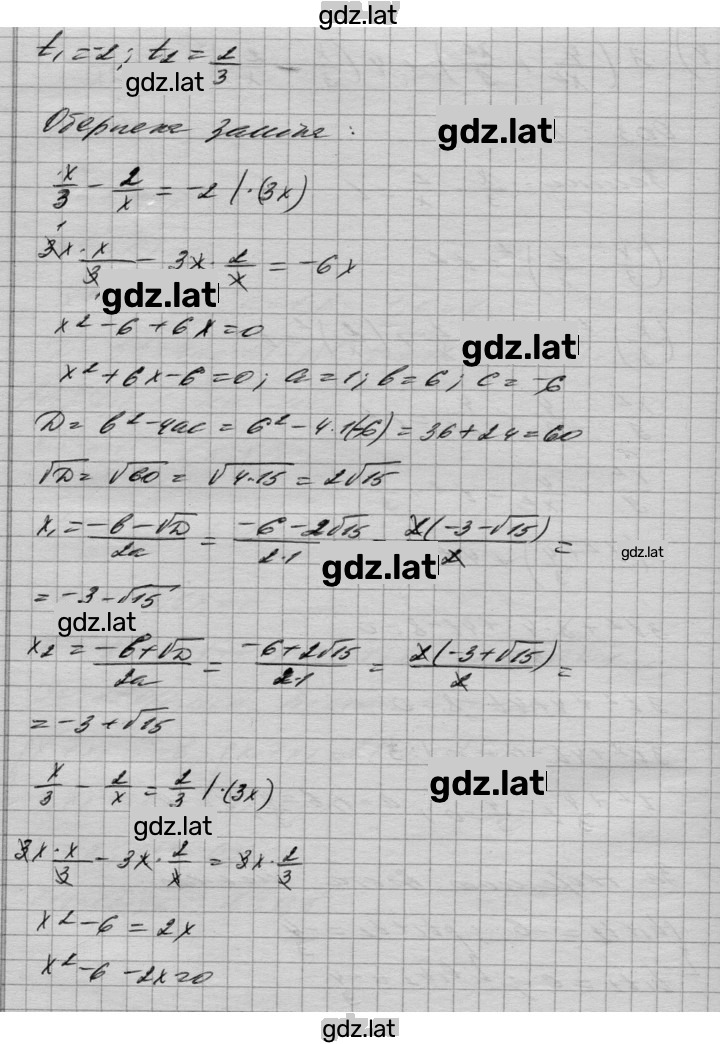 gdz.lat
t₁ = -2; t₂ = 2/3
gdz.lat
Обернена заміна:
gdz.lat
x/3 - 2/x = -2 | · (3x)
3x · x/3 - 3x · 2/x = -6x
gdz.lat
x² - 6 + 6x = 0
gdz.lat
x² + 6x - 6 = 0; a = 1; b = 6; c = -6
D = b² - 4ac = 6² - 4·1·(-6) = 36 + 24 = 60
√D = √60 = √4·15 = 2√15
x₁ = -b - √D/2a = -6 - 2√15/2·1 = 2(-3 - √15)/2 =
gdz.lat
gdz.lat
= -3 - √15
gdz.lat
x₂ = -b + √D/2a = -6 + 2√15/2·1 = 2(-3 + √15)/2 =
= -3 + √15
gdz.lat
x/3 - 2/x = 2/3 | · (3x)
gdz.lat
3x · x/3 - 3x · 2/x = 3x · 2/3
x² - 6 = 2x
x² - 6 - 2x = 0
gdz.lat